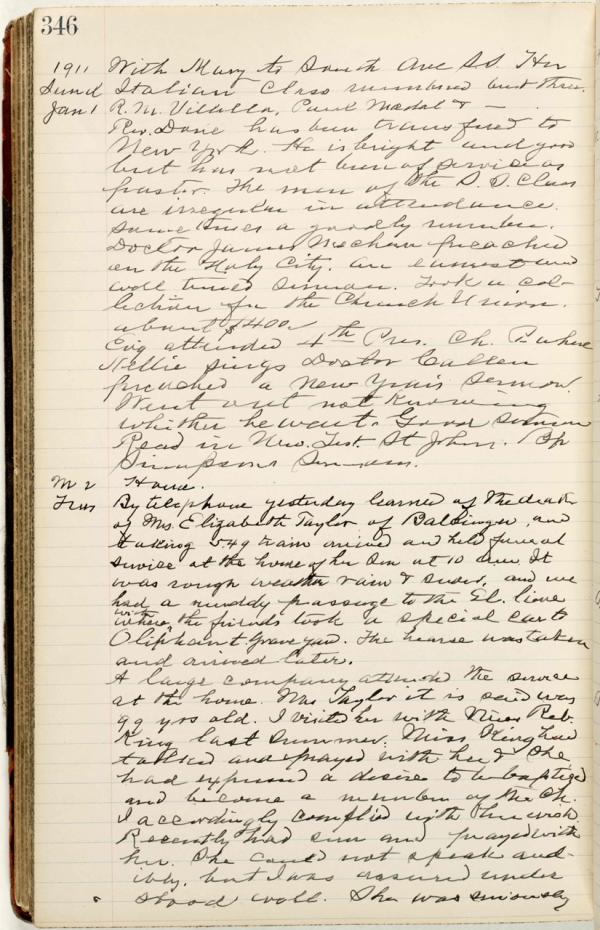 346
1911 With Mary to South Ave S.S. Her
Sund Italian Class numbered but three.
Jan 1 R. M. Villella, Paul Madal & —
Rev. Dane has been transfered to
New York. He is bright and good
but has not been of service as
pastor. The men of the S. S. Class
are irregular in attendance.
Some times a goodly number.
Doctor James Mechem preached
on the Holy City. An earnest and
well timed sermon. Took a col-
lection for the Church Union.
about $400.
Evg attended 4th Pres. Ch. P. where
Nellie sings Doctor Cullen
preached a New Years Sermon.
Went out not knowing
whither he went. Good sermon
Read in New. Test. St John. Bp
Simpsons Sermons.
M 2 Home.
Tues By telephone yesterday learned of the death
of Mrs. Elizabeth Taylor of Baldinger, and
taking 549 train arrived and held funeral
service at the home of her Son at 10 a.m. It
was rough weather rain & snow, and we
had a muddy passage to the El. line
where with the friends took a special car to
Oliphant Grave yard. The hearse was taken
and arrived later.
A large company attended the service
at the home. Mrs Taylor it is said was
99 yrs old. I visited her with Miss Reb.
King last summer. Miss King had
talked and prayed with her & She
had expressed a desire to be baptized
and become a member of the Ch.
I accordingly complied with her wish.
Recently had seen and prayed with
her. She could not speak aud-
ibly, but I was assured under
stood well. She was seriously